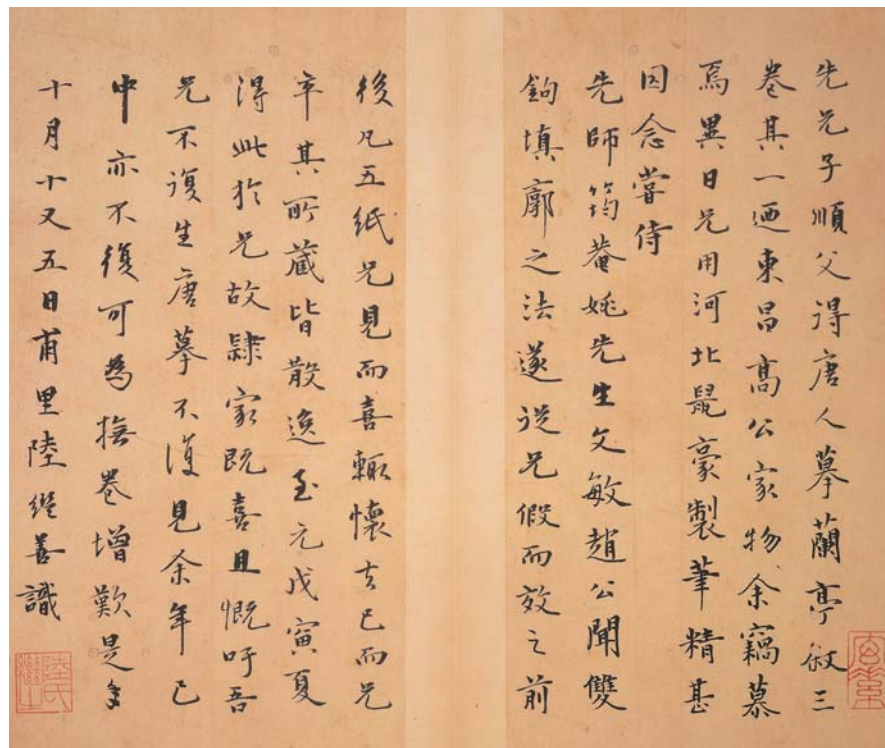 先兄子順父得唐人摹蘭亭叙三
卷其一迺東昌高公家物余竊慕
焉異日兄用河北鼠豪製筆精甚
因念嘗侍
先師筠菴姚先生文敏趙公聞雙
鉤填廓之法遂從兄假而效之前
後凡五紙兄見而喜輒懷去已而兄
卒其所藏皆散逸至元戊寅夏
得此於兄故隸家既喜且慨吁吾
兄不復生唐摹不復見余年已
中亦不復可為撫卷增歎是年
十月十又五日甫里陸繼善識
陸氏繼之